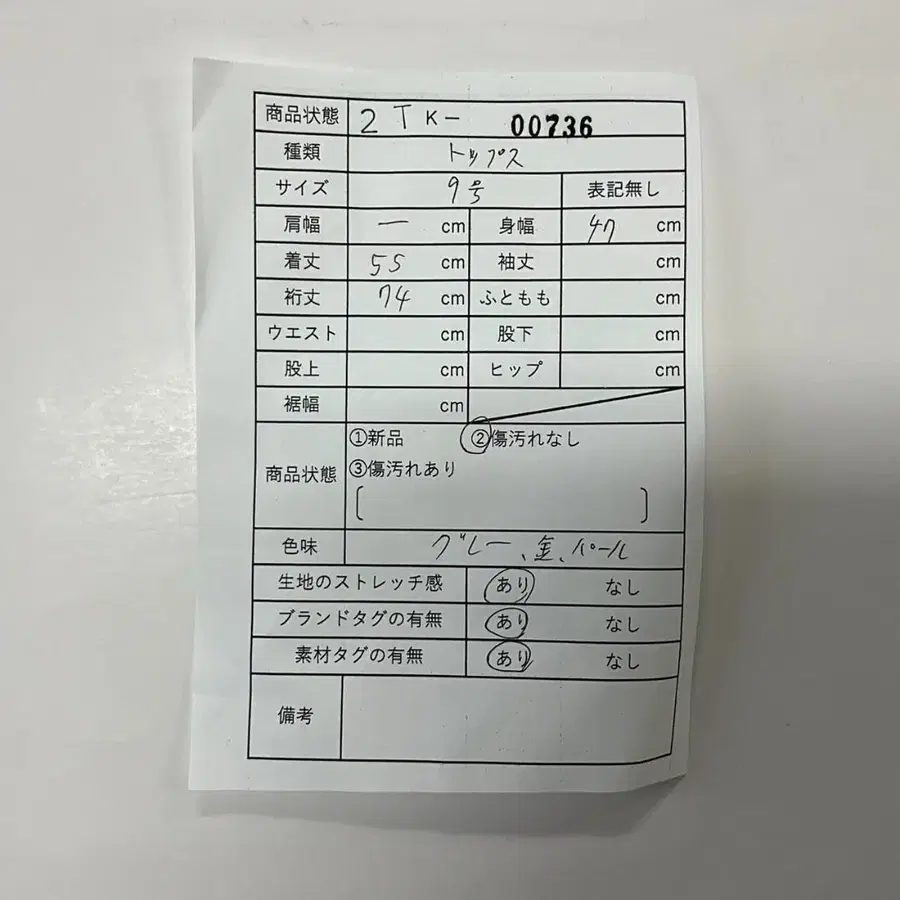 商品状態 2TK- 00736
種類 トップス
サイズ 9号 表記無し
肩幅 ー cm 身幅 47 cm
着丈 55 cm 袖丈 cm
裄丈 74 cm ふともも cm
ウエスト cm 股下 cm
股上 cm ヒップ cm
裾幅 cm
商品状態 ①新品 ②傷汚れなし
③傷汚れあり
[ ]
色味 グレー、金、パール
生地のストレッチ感 あり なし
ブランドタグの有無 あり なし
素材タグの有無 あり なし
備考